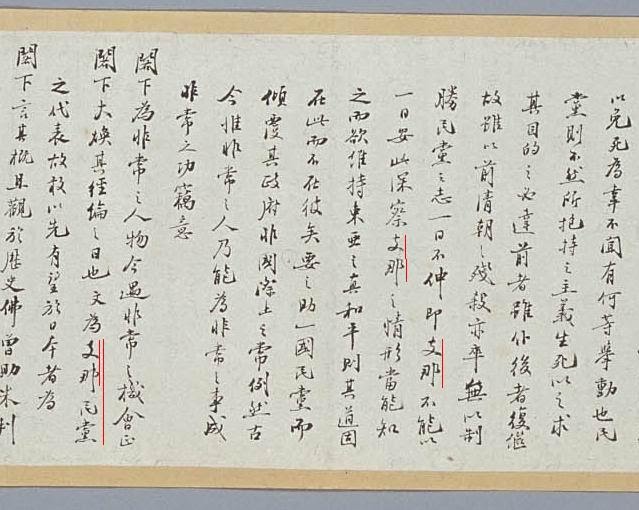 以免死為幸不聞有何等舉動也民
黨則不然所抱持之主義生死以之求
其目的之必達前者雖仆後者復繼
故雖以前清朝之殘殺亦卒無以制
勝民黨之志一日不伸即支那不能以
一日安此深察支那之情形當能知
之而欲維持東亞之真和平則其道固
在此而不在彼矣要之助一國民黨而
傾覆其政府非國際上之常例然古
今惟非常之人乃能為非常之事成
非常之功竊意
閣下為非常之人物今遇非常之機會正
閣下大煥其經倫之日也文為支那民黨
之代表故敢以先有望於日本者為
閣下言其概且觀於歷史佛曾助米